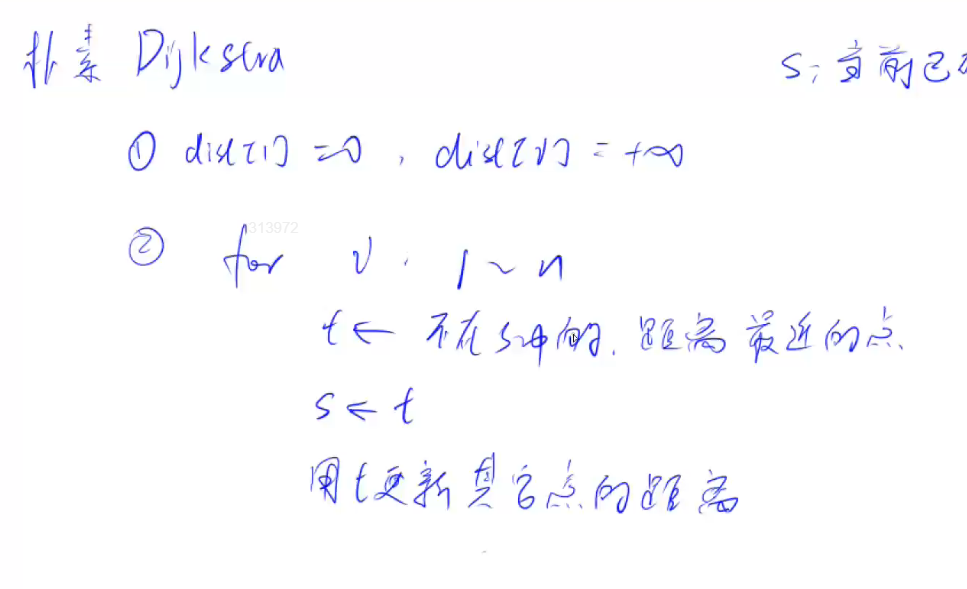 朴素 Dijkstra
s: 当前已
① dist[1] = 0, dist[v] = +∞
313972
② for v: 1~n
t ← 不在s中的, 距离最近的点.
s ← t
用t更新其它点的距离